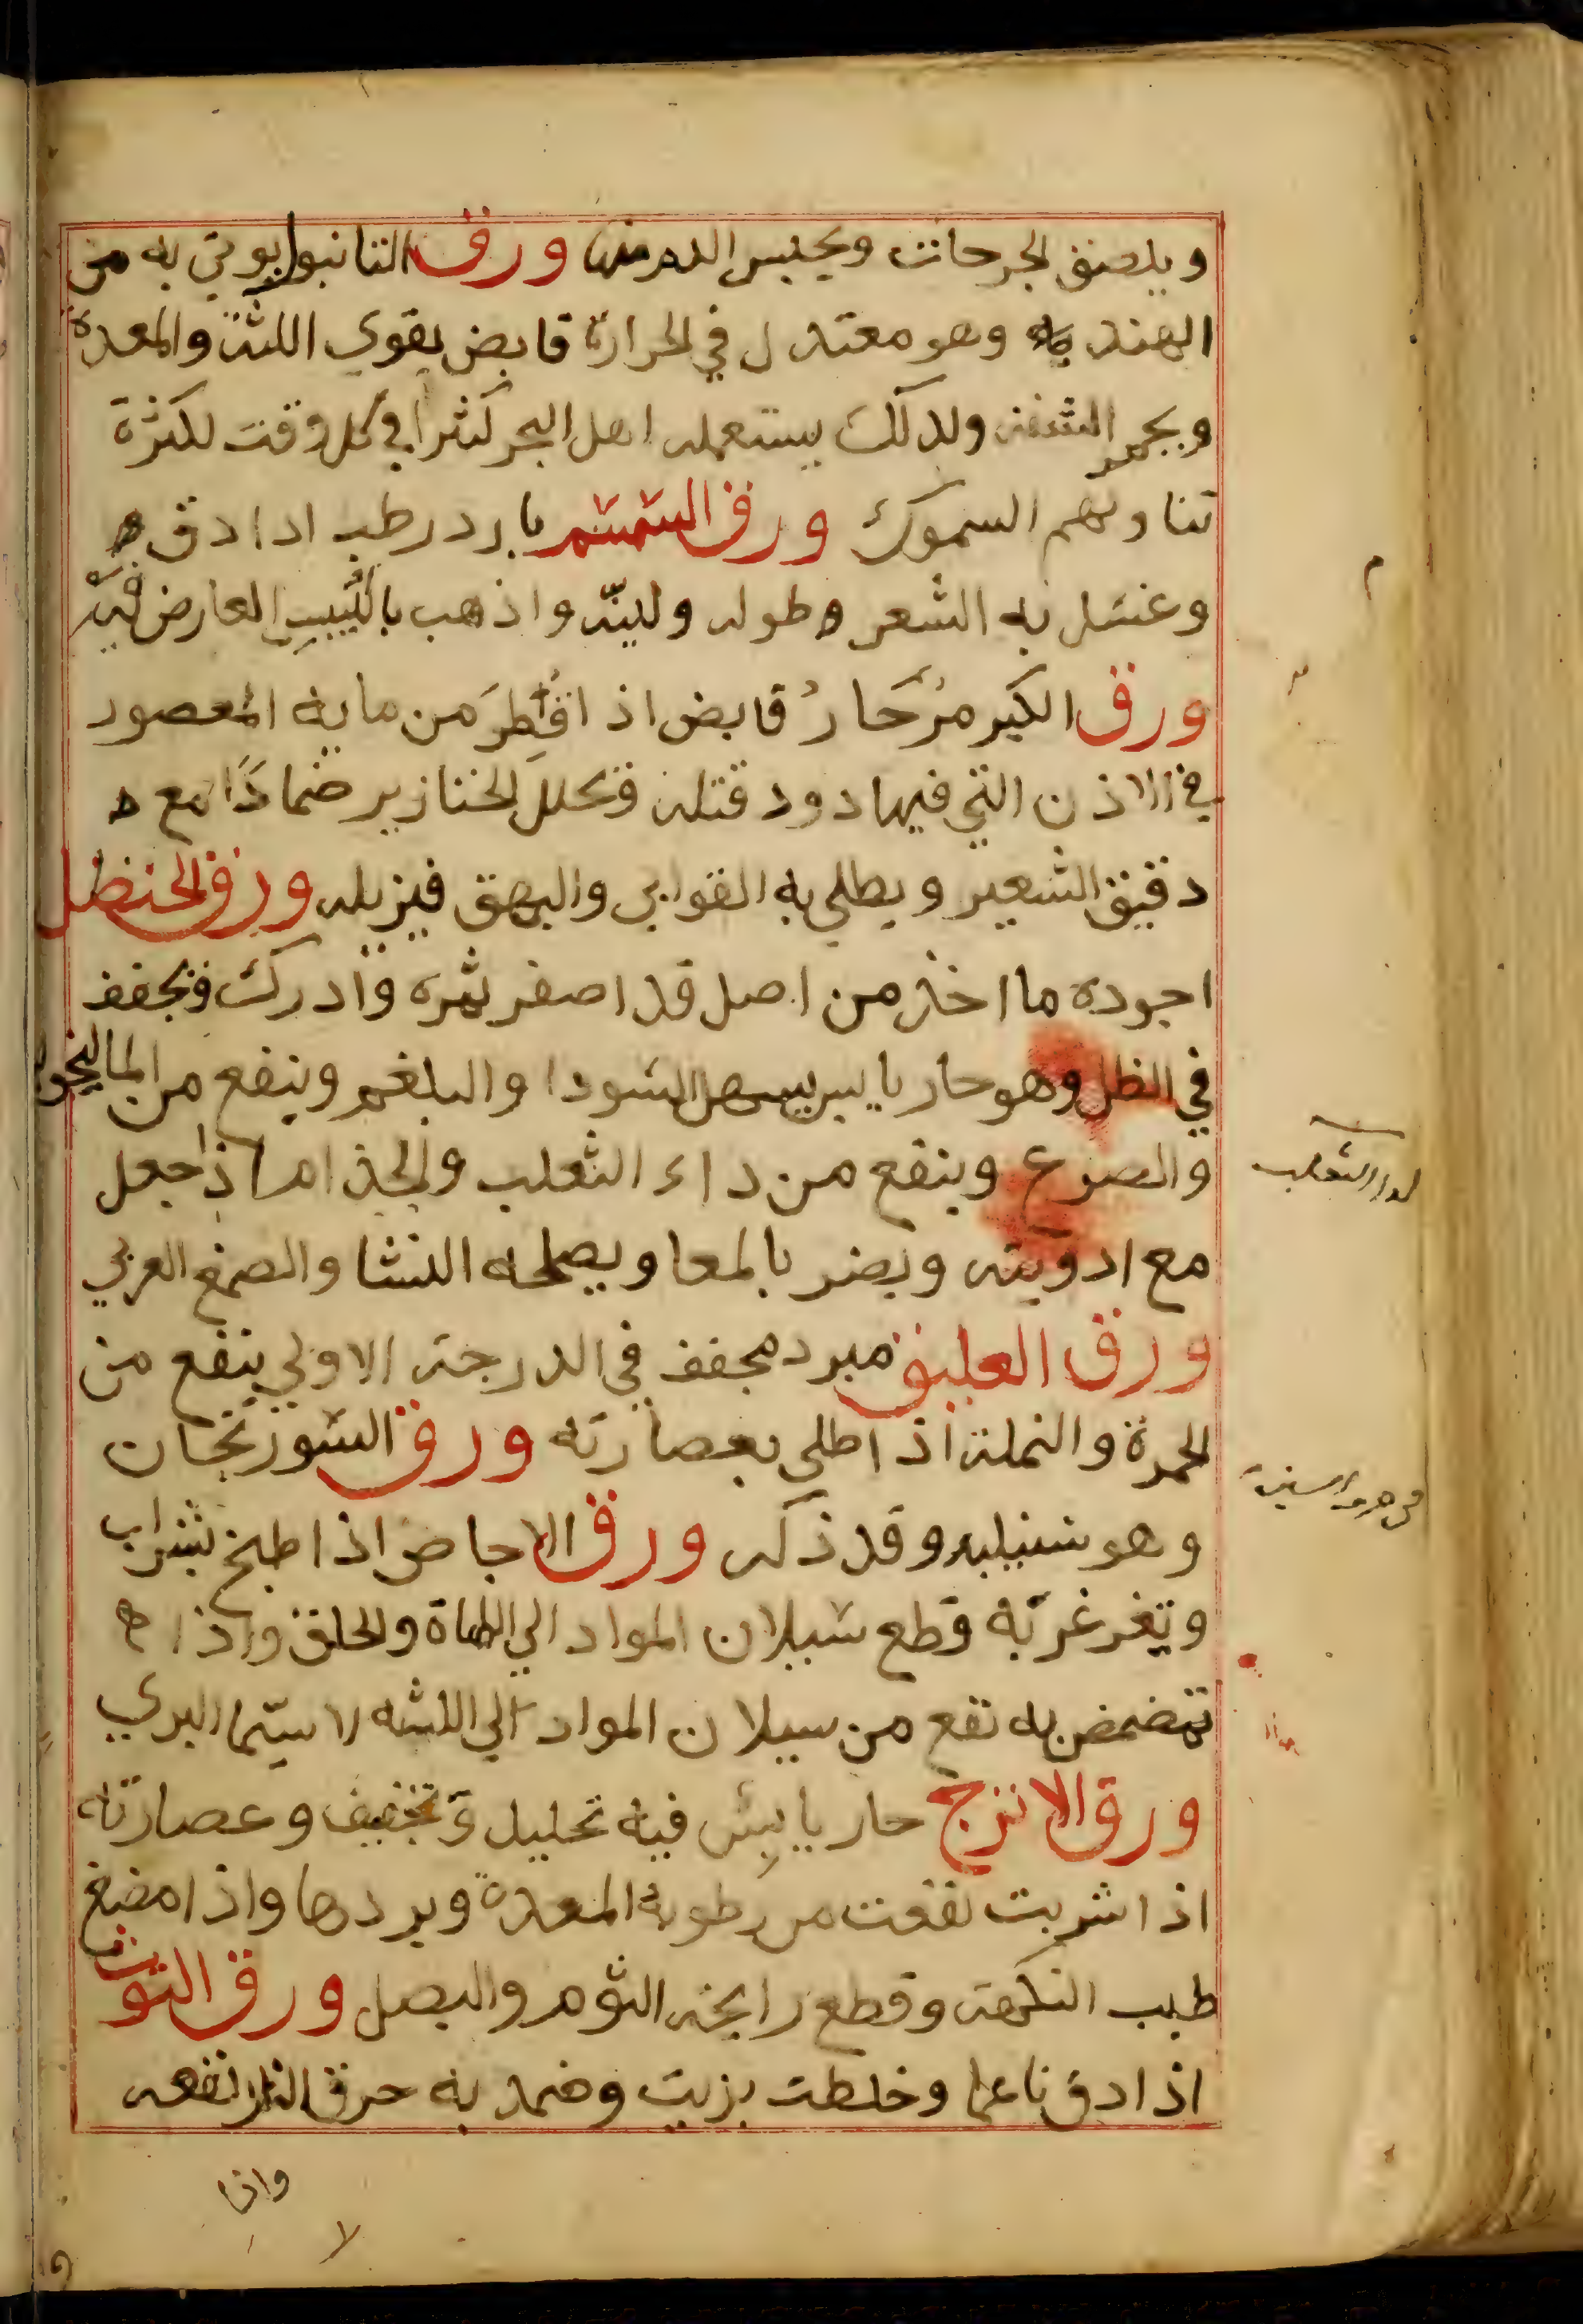 ويلصق الجرحات ويحبس الدم منها ورق التانبوا يوتي به من
الهند وهو معتدل في الحرارة قابض يقوي اللثة والمعدة
ويحمر الشفة ولذلك يستعمله اهل البحر كثرا في كل وقت لكثرة
تناولهم السموك ورق السمسم بارد رطب اذا دق
وغسل به الشعر وطوله ولينه واذهب باليبس العارض فيه
ورق الكبر مر حار قابض اذا قطر من مايه المعصور
في الاذن التي فيها دود قتله وتحلل الخنازير ضمادا مع
دقيق الشعير ويطلي به القوابي والبهق فيزيله ورق الحنضل
اجوده ما اخذ من اصل قد اصفر ثمره وادرك ويجفف
في الظل وهو حار يابس يسهل السودا والبلغم وينفع من الماليخوليا
والصرع وينفع من داء الثعلب والجذام اذا جعل
مع ادويته ويضر بالمعا ويصلحه النشا والصمغ العربي
ورق العليق مبرد مجفف في الدرجة الاولي ينفع من
الحمرة والنملة اذا طلي بعصارته ورق السورنجان
وهو شنبليد وقد ذكر ورق الاجاص اذا طبخ بشراب
وتغرغر به قطع سيلان المواد الي اللهاة والحلق واذا
تمضمض به نفع من سيلان المواد الي اللثه لا سيما البري
ورق الاترج حار يابس فيه تحليل وتجفيف وعصارته
اذا شربت نفعت من رطوبة المعدة وبردها واذا مضغ
طيب النكهة وقطع رايحة الثوم والبصل ورق التوت
اذا دق ناعما وخلطت بزيت وضمد به حرق النار نفعه
واذا
لداء الثعلب